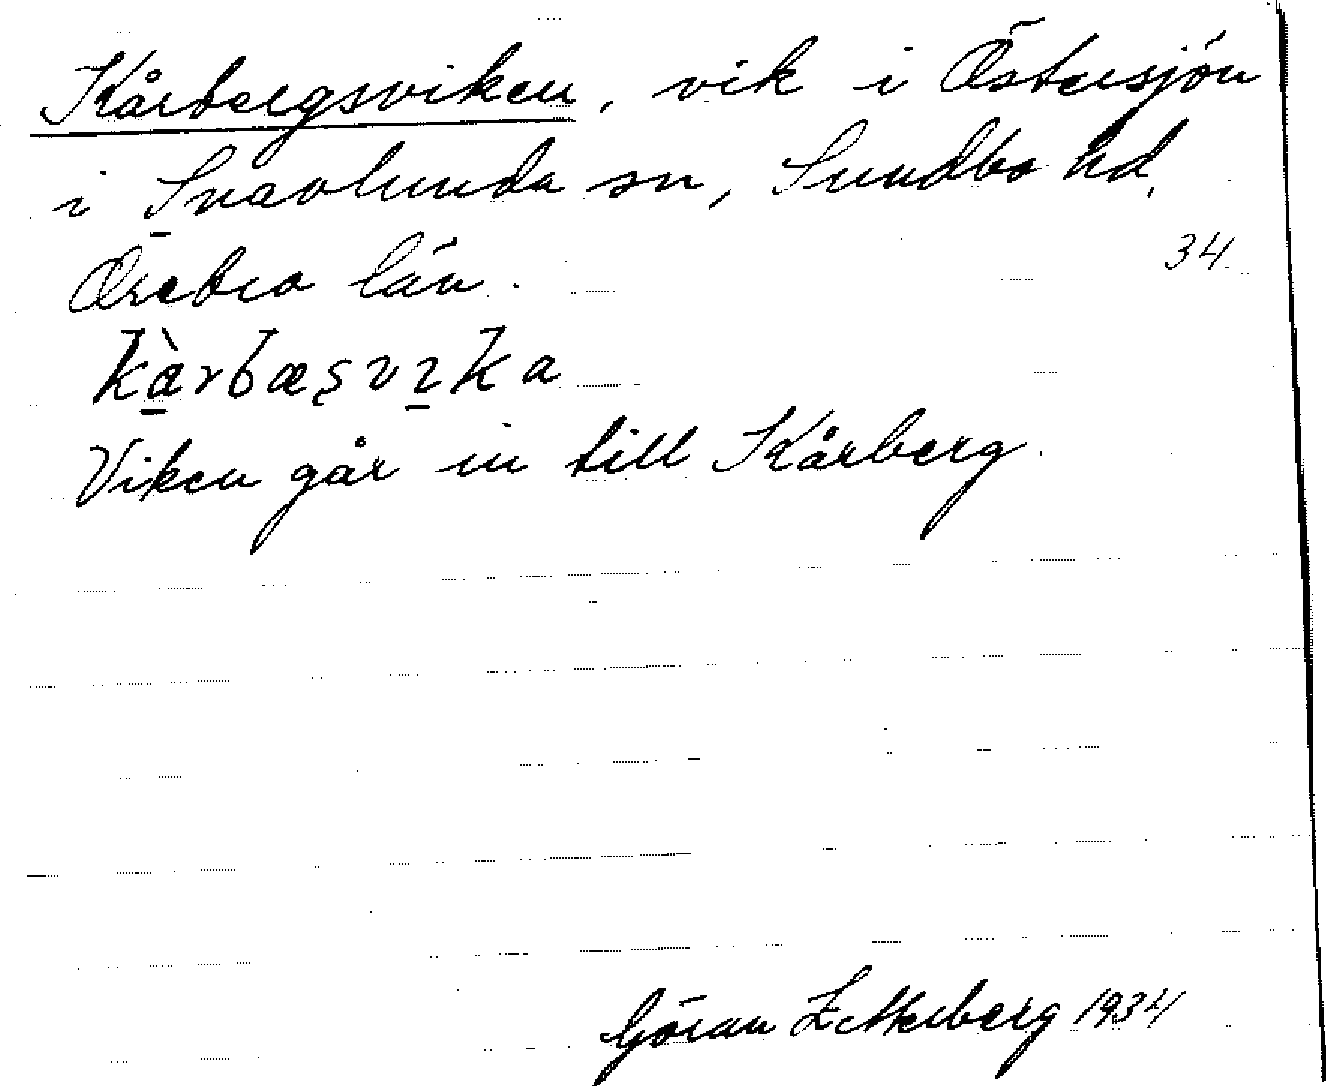 Kårbergsviken, vik i Östersjön
i Snavlunda sn, Sundbo hd,
Örebro län.
34
kàrbæşvıka
Viken går in till Kårberg.
Göran Zetterberg 1934